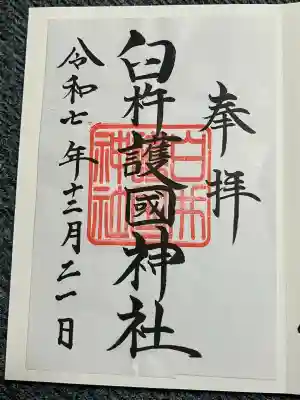 奉拝
臼杵護國神社
臼杵護國神社
令和七年十二月二一日